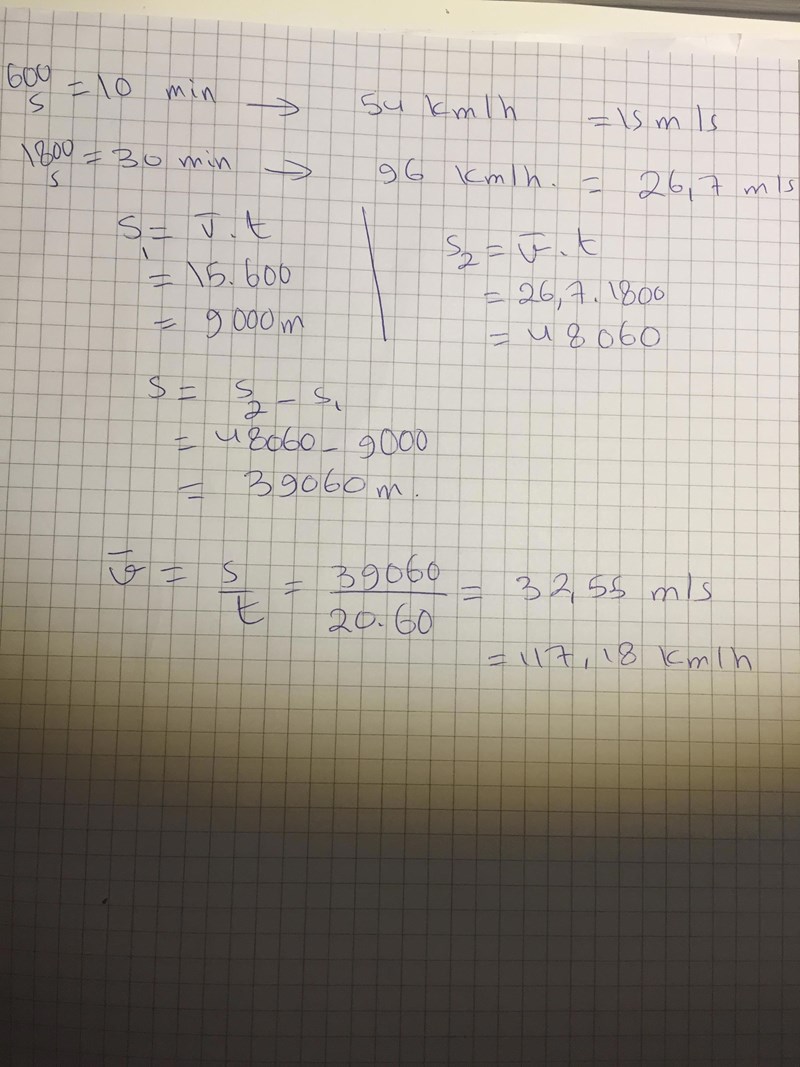 600 s = 10 min → 54 km/h = 15 m/s
1800 s = 30 min → 96 km/h. = 26,7 m/s
S₁ = v̄.t
= 15.600
= 9000m
s₂ = v̄.t
= 26,7.1800
= 48060
s = s₂ - s₁
= 48060 - 9000
= 39060 m.
v̄ = s/t = 39060/20.60 = 32,55 m/s
= 117,18 km/h